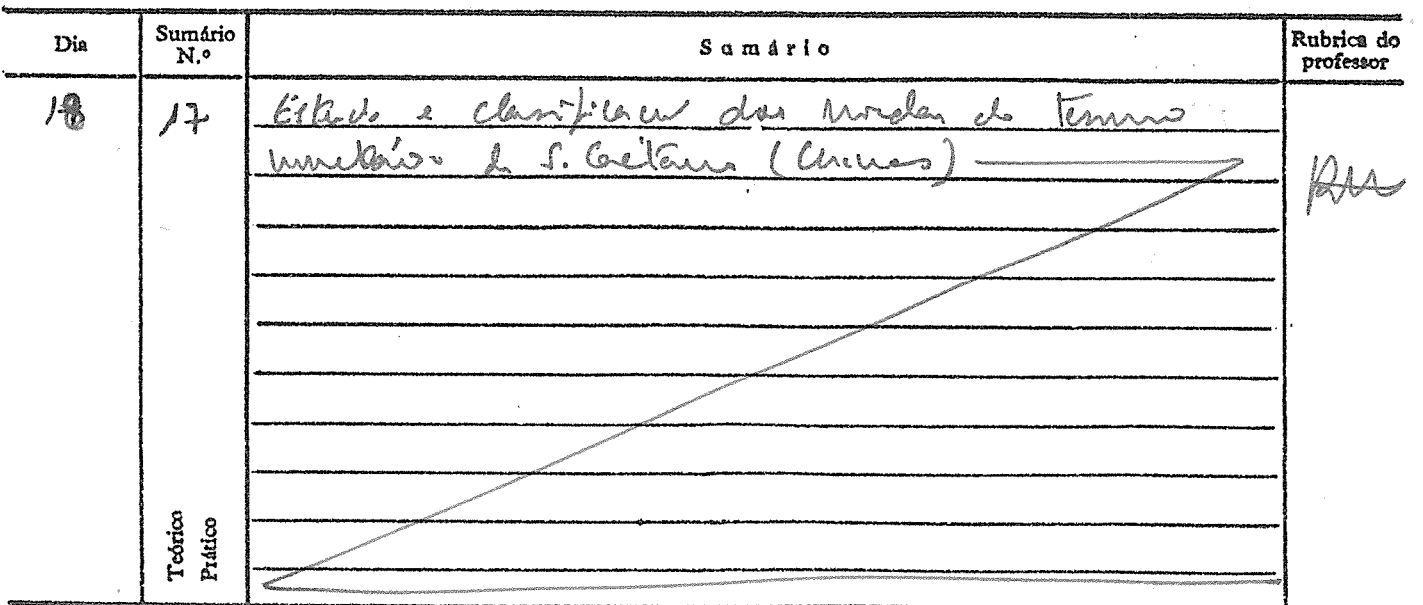 Dia
Sumário N.º
Sumário
Rubrica do professor
18
17
Estudo e classificação das moedas do tesouro
monetário de S. Caetano (Chaves)
Teórico
Prático